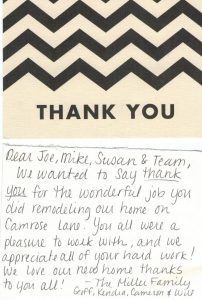 THANK YOU
Dear Joe, Mike, Susan & Team,
We wanted to say thank
you for the wonderful job you
did remodeling our home on
Camrose Lane. You all were a
pleasure to work with, and we
appreciate all of your hard work!
We love our new home thanks
to you all! – The Miller Family
Geoff, Kendra, Cameron &